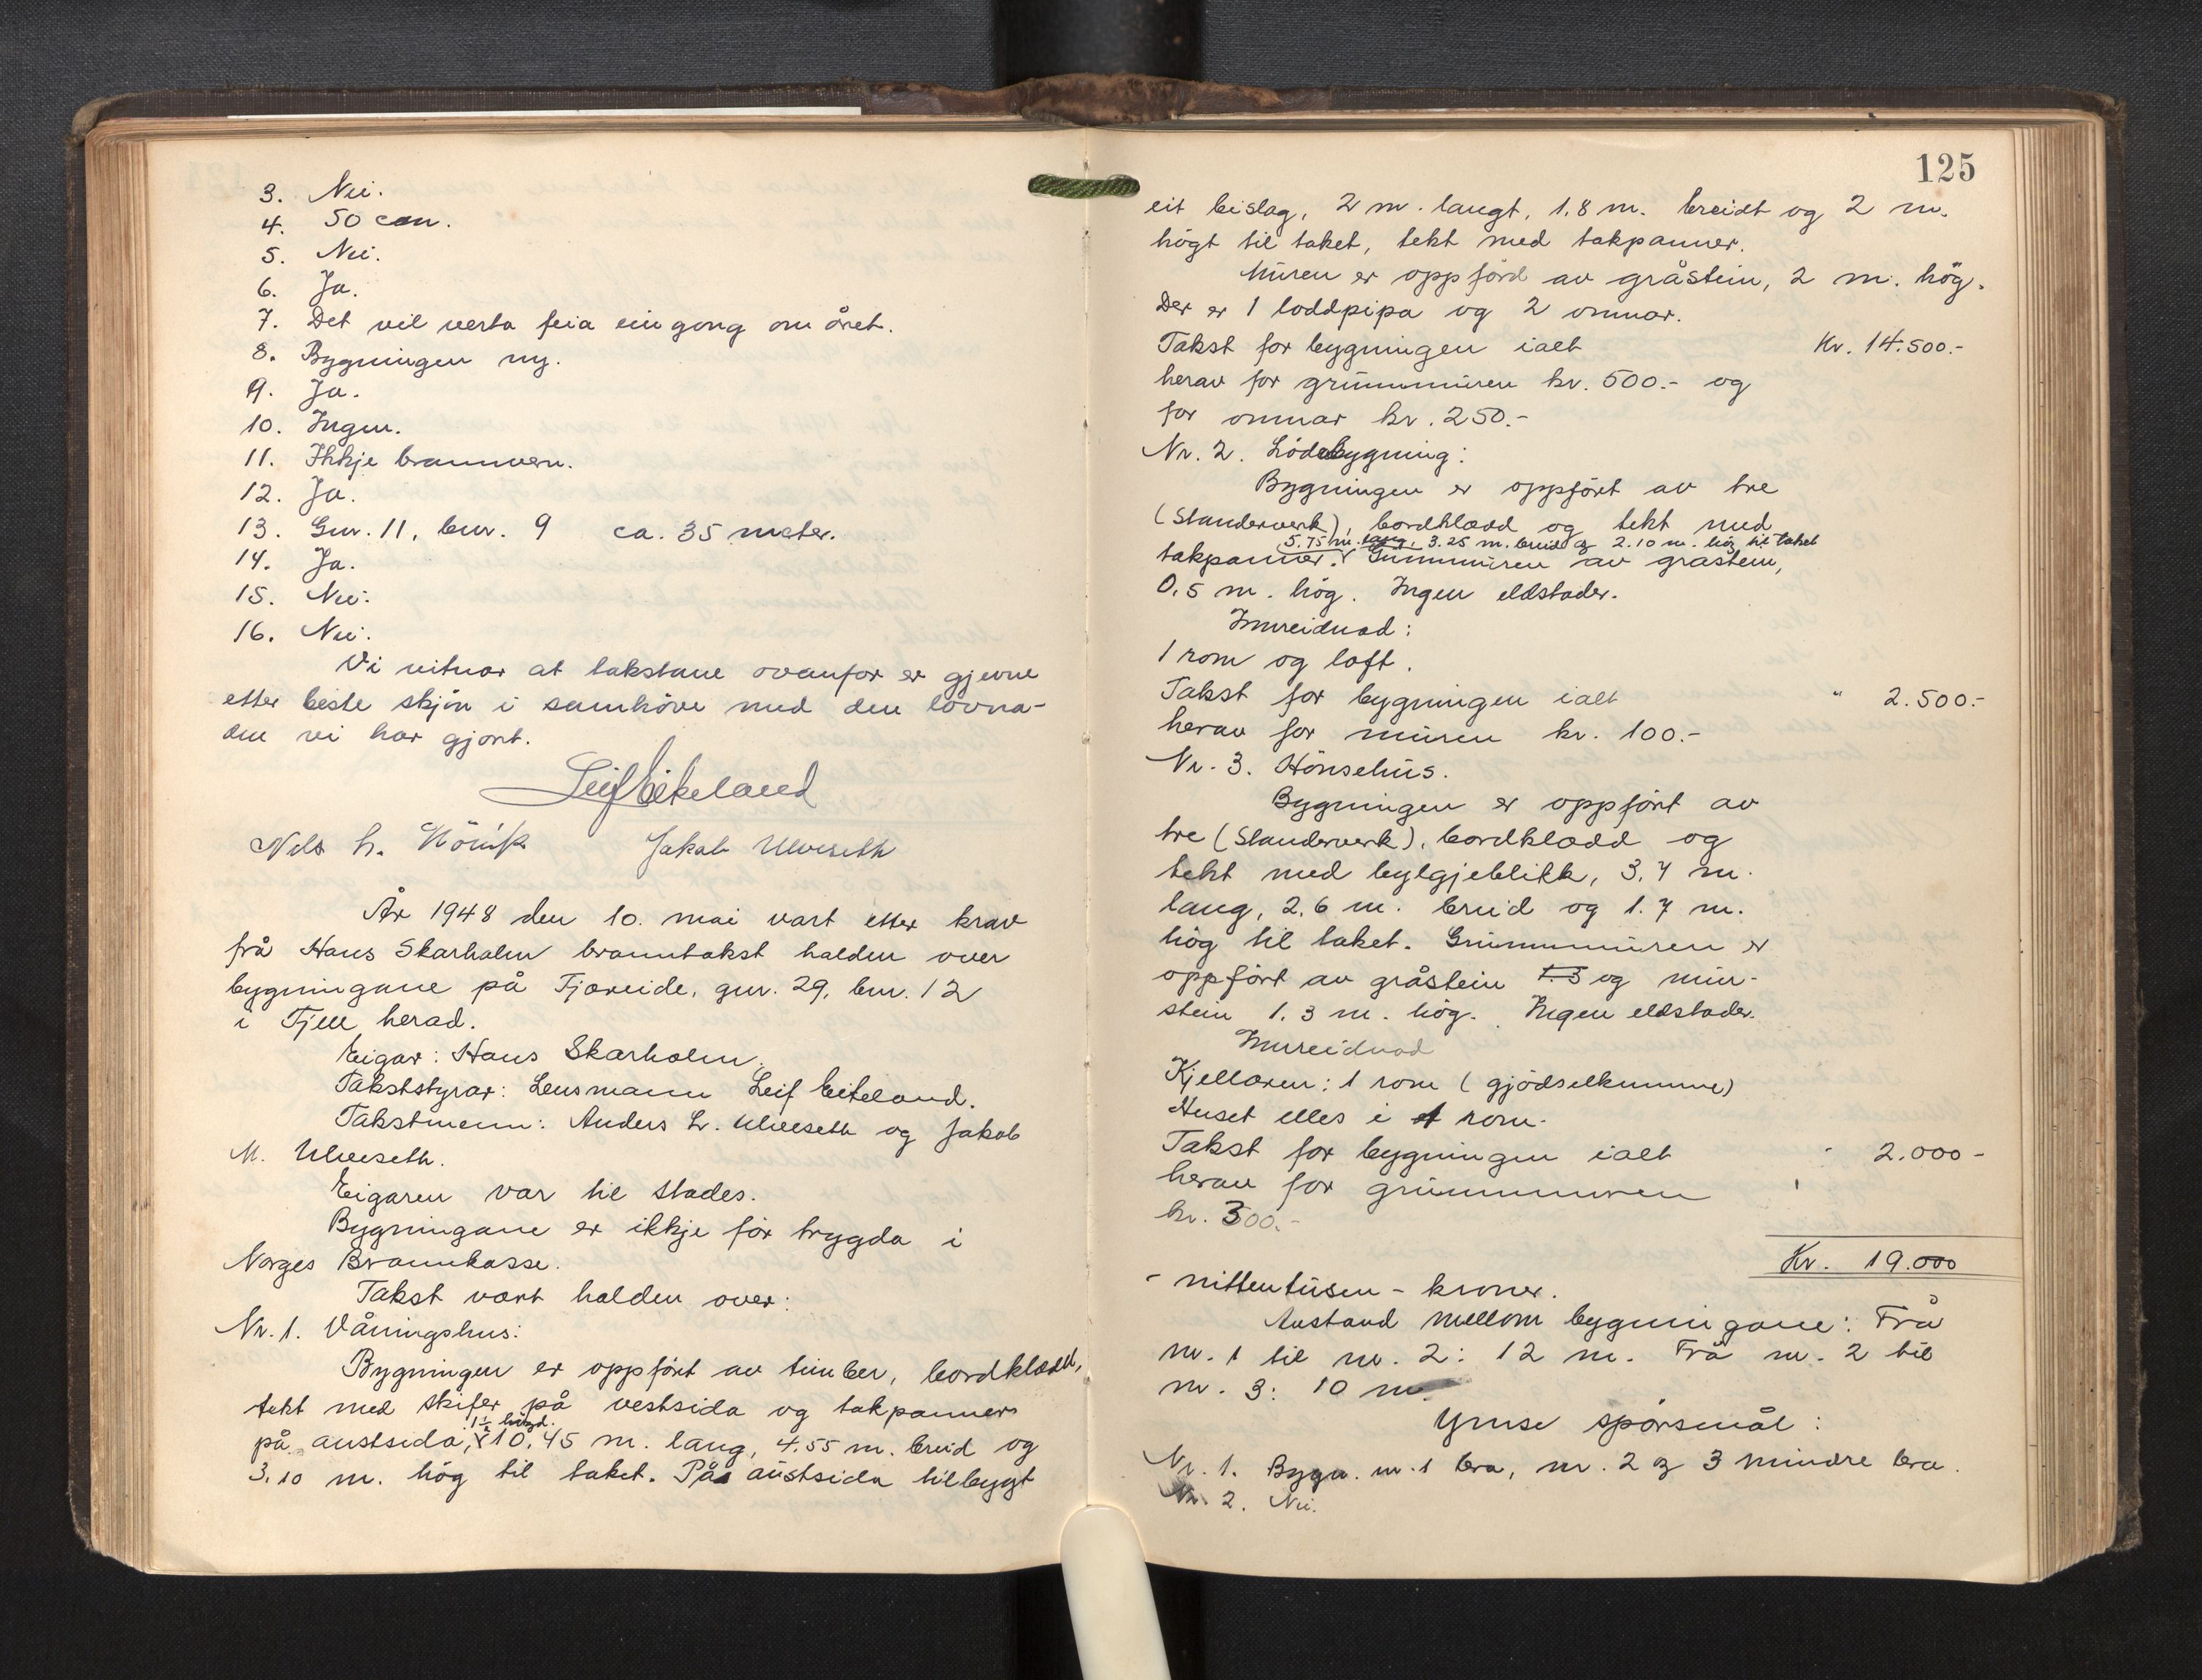 3. Nei.
4. 50 cm.
5. Nei.
6. Ja.
7. Det vil verta feia ein gong om året.
8. Bygningen ny.
9. Ja.
10. Ingen.
11. Ikkje brannvern.
12. Ja.
13. Gnr. 11, bnr. 9 ca. 35 meter.
14. Ja.
15. Nei.
16. Nei.
Vi vitnar at takstane ovanfor er gjevne
etter beste skjön i samhöve med den lovna-
den vi har gjort.
Leif Eikeland
Nils H. Jakob Ulveseth
År 1948 den 10. mai vart etter krav
frå Hans Skarholm branntakst halden over
bygningane på Fjæreide, gnr. 29, bnr. 12
i Fjell herad.
Eigar: Hans Skarholm.
Takststyrar: Lensmann Leif Eikeland.
Takstmenn: Anders L. Ulveseth og Jakob
M. Ulveseth.
Eigaren var til stades.
Bygningane er ikkje för trygda i
Norges Brannkasse.
Takst vart halden over:
Nr. 1. Våningshus:
Bygningen er oppfört av timber, bordklædd,
tekt med skifer på vestsida og takpanner
1½ högd.
på austsida, 10,45 m. lang, 4.55 m. breid og
3.10 m. hög til taket. På austsida tilbygt
125
eit bislag, 2 m. langt, 1.8 m. breidt og 2 m.
högt til taket, tekt med takpanner.
Muren er oppförd av gråstein, 2 m. hög.
Der er 1 loddpipa og 2 omnar.
Takst for bygningen ialt Kr. 14.500.-
herav for grunnmuren kr. 500.- og
for omnar kr. 250.-
Nr. 2. Lödebygning:
Bygningen er oppfört av tre
(Standerverk), bordklædd og tekt med
5.75 m. lang, 3.25 m. breid og 2.10 m. hög til taket
takpanner. Grunnmuren av gråstein,
0,5 m. hög. Ingen eldstader.
Innreidnad:
1 rom og loft.
Takst for bygningen ialt " 2.500.-
herav for muren kr. 100.-
Nr. 3. Hönsehus.
Bygningen er oppfört av
tre (Standerverk), bordklædd og
tekt med bylgjeblikk, 3.4 m.
lang, 2,6 m. breid og 1.7 m.
hög til taket. Grunnmuren er
oppfört av gråstein 1.3 og mur-
stein 1.3 m. hög. Ingen eldstader.
Innreidnad
Kjellaren: 1 rom (gjödselkumme)
Huset elles i 1 rom.
Takst for bygningen ialt " 2.000-
herav for grunnmuren
kr. 300.-
Kr. 19.000
- nittentusen - kroner.
Avstand mellom bygningane: Frå
nr. 1 til nr. 2: 12 m. Frå nr. 2 til
nr. 3: 10 m.
Ymse spörsmål:
Nr. 1. Bygn. nr. 1 bra, nr. 2 og 3 mindre bra.
Nr. 2. Nei.